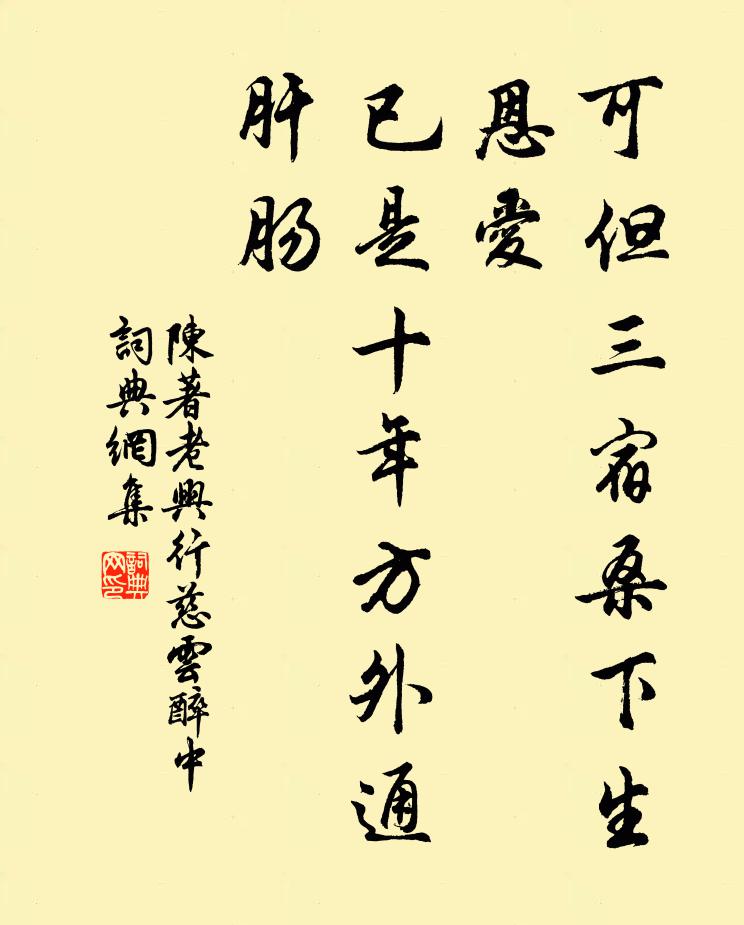 可但三宿桑下生
恩愛
已是十年方外通
肝肠
陳著老興行慈雲醉中
詞典網集
詞典
网印